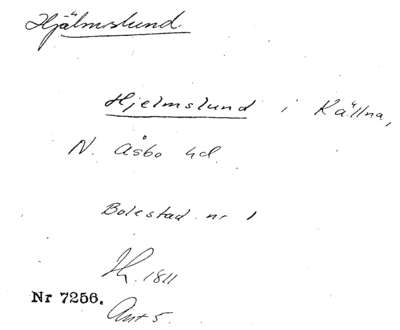 Hjälmslund
Hjelmslund i Källna,
N. Åsbo hd.
Bolestad nr 1
Jh. 1811
Nr 7256.
Ant 5.